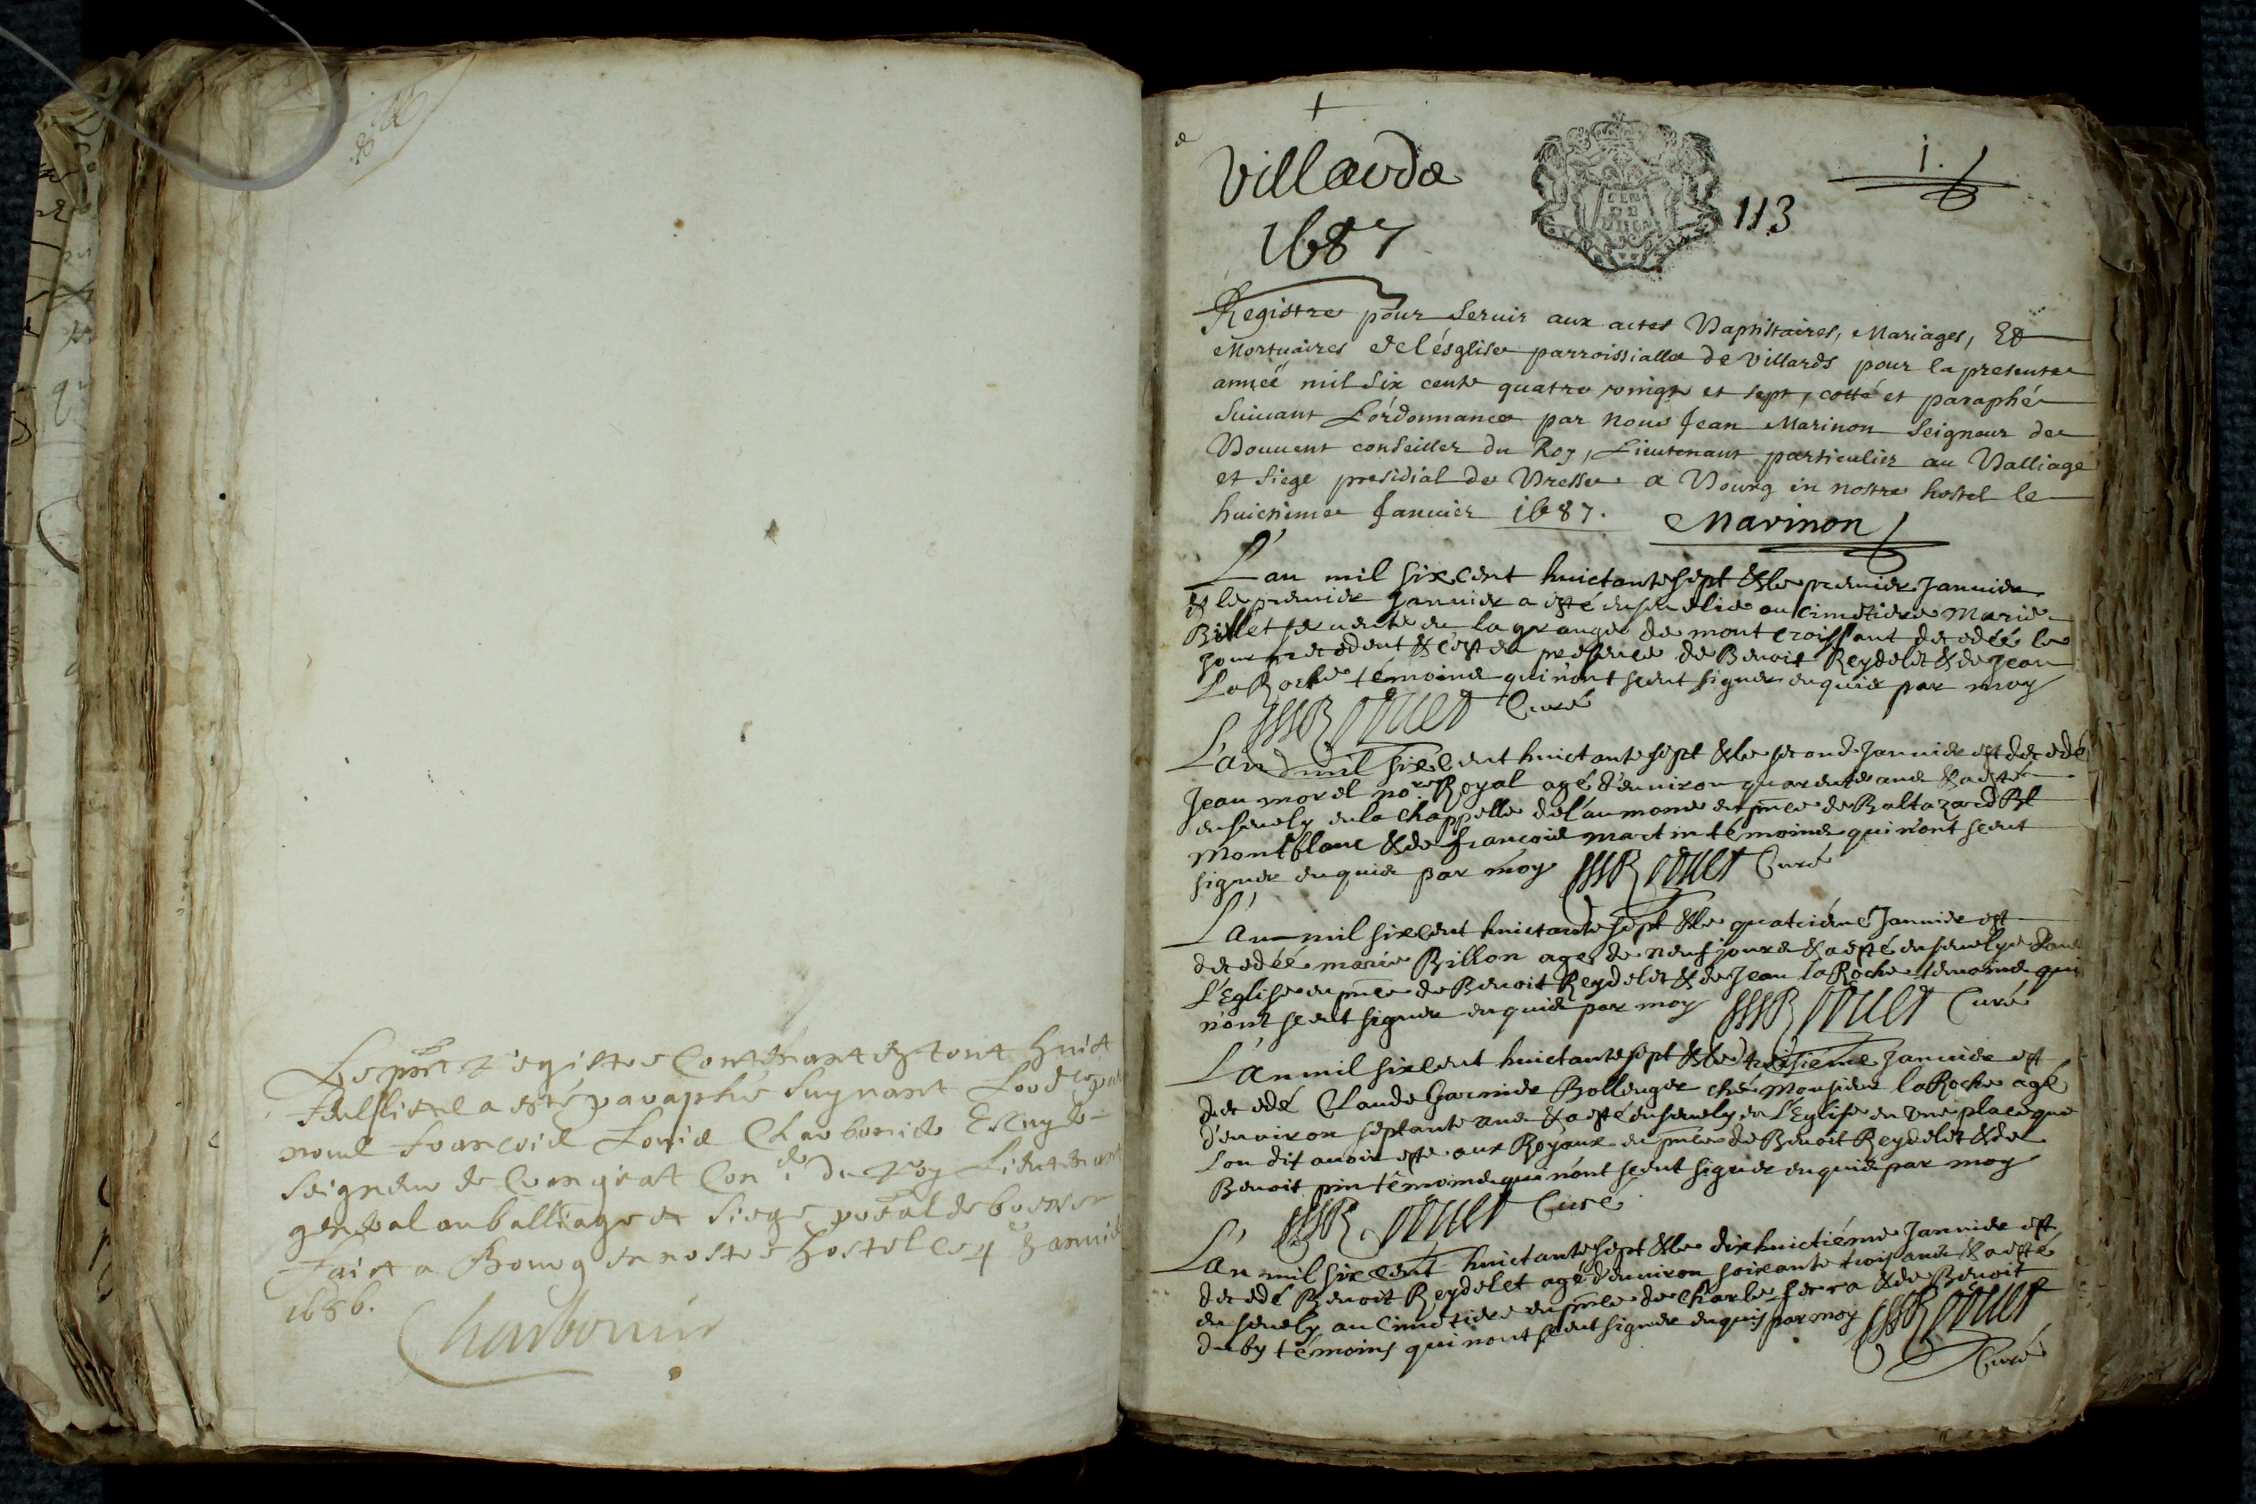 Le pnt Registre contenant en tout huict
feullietz a esté paraphé suyvant
nous François Louis Charbonier Escuyer
Seigneur de Con.er du Roy Lieutenant
general au balliage et siege pñal de bresse
Faict a Bourg en nostre hostel le 4e Janvier
1686.
Charbonnier
+
Villards
1687
113
1.
Registre pour Servir aux actes Baptistaires, Mariages, Et
Mortuaires de l'ésglise parroissialle de Villards pour la presente
année mil Six cents quatre vingt et sept, cotté et paraphé
Suivant L'ordonnance par nous Jean Marinon Seigneur de
Bouvent conseiller du Roy, Lieutenant particulier au Balliage
et Siege presidial de Bresse a Bourg en nostre hostel le
huictieme Janvier 1687. Marinon
L'an mil six cent huictante sept & le premier Janvier
& le premier Janvier a esté ensevelie au cimetiere Marie
Billet servante en la grange de mont croissant decedée le
jour precedent & c'est en presence de Benoit Reydelet & de Jean
La Roche témoins qui n'ont sceut signer enquis par moy
Curé
L'an mil six cent huictante sept & le second Janvier est decedé
Jean morel nore Royal agé d'environ quarente ans & a esté
ensevely en la Chappelle de l'aumone en pnce de Baltazard
Montblanc & de francois martin témoins qui n'ont sceut
signer enquis par moy Curé
L'an mil six cent huictante sept & le quatriéme Janvier est
decedée marie Billon agee de neuf jours & a esté ensevelye dans
L'Eglise en pnce de Benoit Reydelet & de Jean la Roche temoins qui
n'ont sceut signer enquis par moy Curé
L'an mil six cent huictante sept & le treisieme Janvier est
decedé Claude Garnier Bollenger ché Monsieur la Roche agé
d'environ septante ans & a esté ensevely en L'Eglise en une place que
Lon dit avoir esté aux Royaux en pnce de Benoit Reydelet & de
Benoit pin témoins qui n'ont sceut signer enquis par moy
Curé
L'an mil six cent huictante sept & le dixhuictiéme Janvier est
decedé Benoit Reydelet agé d'environ soixante trois ans & a esté
ensevely au Cimetiere en pnce de Charle & de Benoit
duby témoins qui n'ont sceut signer enquis par moy
Curé